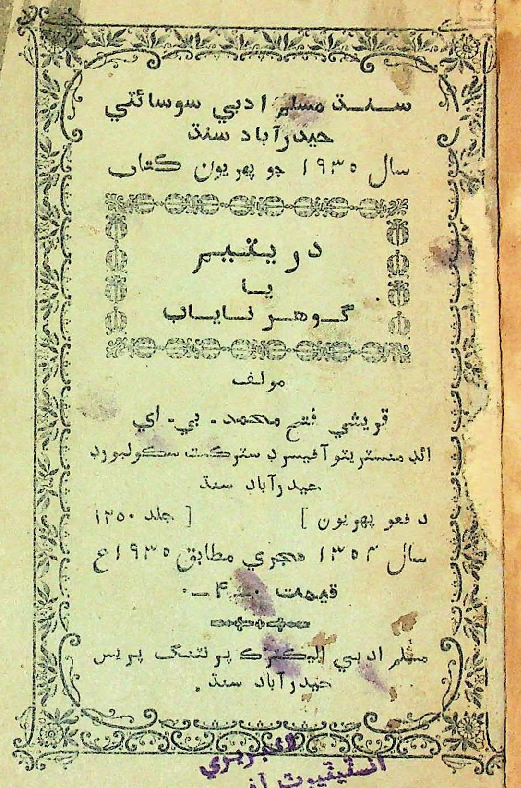 سنڌ مسلم ادبي سوسائٽي
حيدرآباد سنڌ
سال ۱۹۳۵ جو پهريون ڪتاب
در يتيم
يا
گوهر ناياب
مولف
قريشي فتح محمد - بي - اي
ائڊمنسٽريٽو آفيسر ڊسٽرڪٽ سڪول بورڊ
حيدرآباد سنڌ
دفعو پهريون ] [ جلد ۱۲۵۰
سال ۱۳۵۴ هجري مطابق ۱۹۳۵ع
قيمت ۰-۴-۰
مسلم ادبي اليڪٽرڪ پرنٽنگ پريس
حيدرآباد سنڌ.
لائبريري
انسٽيٽيوٽ آف